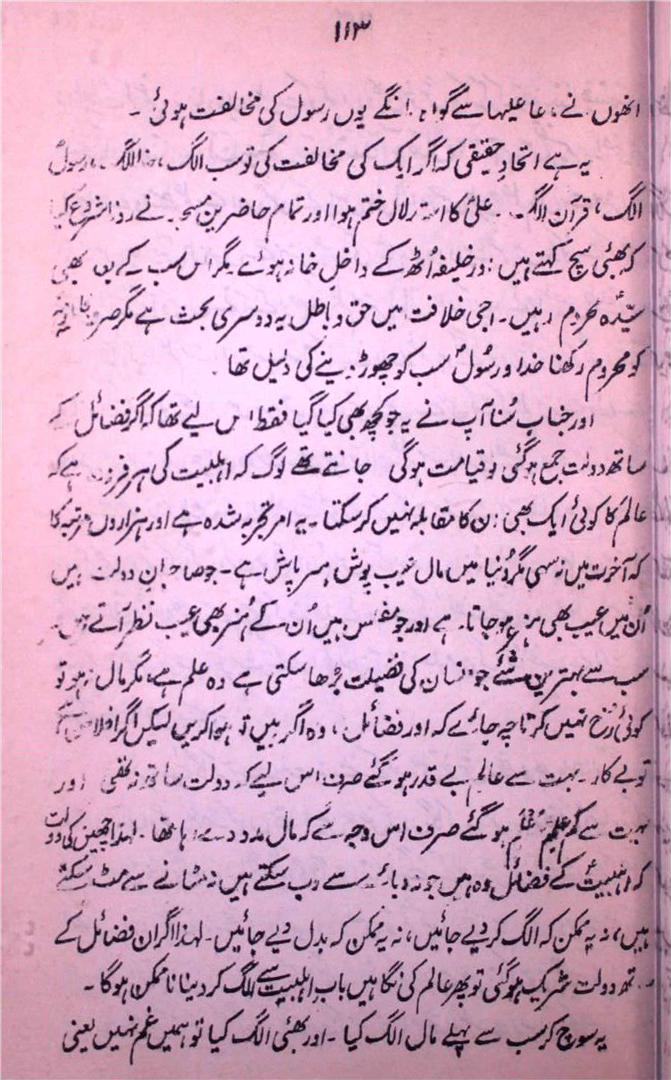 ۱۱۳
انھوں نے، عاعلیہا سے گواہ مانگے یوں رسول کی مخالفت ہوئی۔
یہ ہے اتحادِ حقیقی کہ اگر ایک کی مخالفت کی تو سب الگ، خدا الگ، رسولؐ
الگ، قرآن الگ۔ علیؑ کا استدلال ختم ہوا اور تمام حاضرینِ مسجد نے رونا شروع کیا
کہ بھئی سچ کہتے ہیں اور خلیفہ اُٹھ کے داخلِ خانہ ہوئے مگر اس سب کے بعد بھی
سیّدہؑ محروم رہیں۔ اجی خلافت میں حق و باطل یہ دوسری بحث ہے مگر
کو محروم رکھنا خدا و رسولؐ سب کو چھوڑ دینے کی دلیل تھا۔
اور جناب سُنا آپ نے یہ جو کچھ بھی کیا گیا فقط اس لیے تھا کہ اگر فضائل کے
ساتھ دولت جمع ہو گئی تو قیامت ہوگی جانتے تھے لوگ کہ اہلبیت کی ہر فرد ہے کہ
عالم کا کوئی ایک بھی ان کا مقابلہ نہیں کر سکتا۔ یہ امر تجربہ شدہ ہے اور ہزاروں مرتبہ کا
کہ آخرت میں نہ سہی مگر دُنیا میں مال عیب پوش ہے۔ جو صاحبانِ دولت ہیں
اُن میں عیب بھی ہنر ہو جاتا ہے اور جو مفلس ہیں اُن کے ہُنر بھی عیب نظر آتے ہیں۔
سب سے بہترین شئے جو انسان کی فضیلت بڑھا سکتی ہے وہ علم ہے، مگر مال نہ ہو تو
کوئی رُخ نہیں کرتا چہ جائے کہ اور فضائل، وہ اگر ہیں تو ہوا کریں لیکن اگر افلاس ہے
تو بے کار۔ بہت سے عالم بے قدر ہو گئے صرف اس لیے کہ دولت ساتھ نہ تھی اور
بہت سے کم علم ہو گئے صرف اس وجہ سے کہ مال مدد دے رہا تھا۔ لہٰذا چھین لی دولت
کہ اہلبیتؑ کے فضائل وہ ہیں جو نہ دبائے سے دب سکتے ہیں نہ مٹانے سے مٹ سکتے
ہیں، نہ یہ ممکن کہ الگ کر دیے جائیں، نہ یہ ممکن کہ بدل دیے جائیں۔ لہٰذا اگر ان فضائل کے
ساتھ دولت شریک ہو گئی تو پھر عالم کی نگاہیں بابِ اہلبیتؑ سے الگ کر دینا ناممکن ہوگا۔
یہ سوچ کر سب سے پہلے مال الگ کیا۔ اور بھئی الگ کیا تو ہمیں غم نہیں یعنی